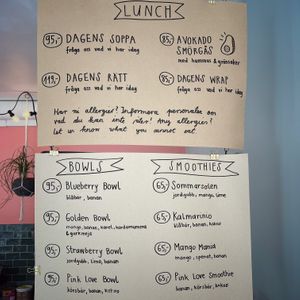 LUNCH
95,- DAGENS SOPPA
fråga oss vad vi har idag
85,- AVOKADO SMÖRGÅS
med hummus & grönsaker
119,- DAGENS RÄTT
fråga oss vad vi har idag
85,- DAGENS WRAP
fråga oss vad vi har idag
Har ni allergier? Informera personalen om
vad du kan inte äta! Any allergies?
Let us know what you cannot eat
BOWLS
95,- Blueberry Bowl
blåbär, banan
95,- Golden Bowl
mango, banan, kanel, kardemumma
& gurkmeja
95,- Strawberry Bowl
jordgubb, lime, banan
95,- Pink Love Bowl
körsbär, banan,
SMOOTHIES
65,- Sommarsolen
jordgubb, mango, lime
65,- Kalmarino
blåbär, banan, kokos
65,- Mango Mania
mango, spenat, banan
65,- Pink Love Smoothie
banan, körsbär, kakao